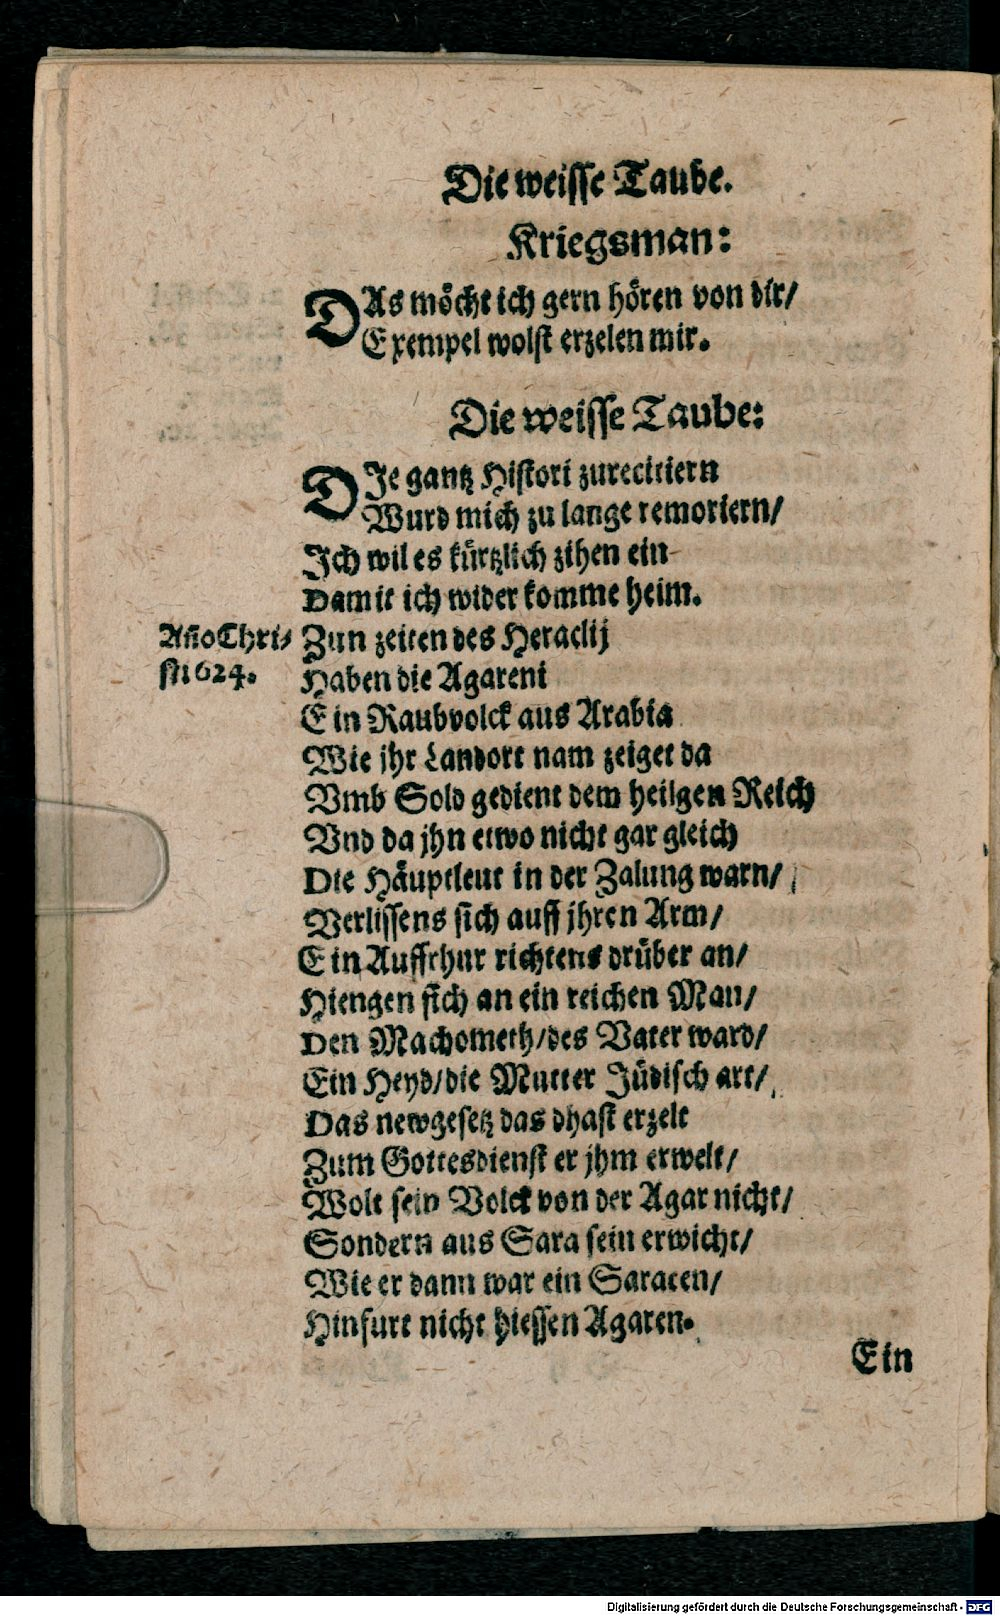 Die weisse Taube.
Kriegsman:
DAs möcht ich gern hören von dir/
Exempel wolst erzelen mir.
Die weisse Taube:
DJe gantz Histori zurecitiern
Wurd mich zu lange remoriern/
Jch wil es kürtzlich zihen ein
Damit ich wider komme heim.
Zun zeiten des Heraclij
Añо Chri-
sti 624.
Haben die Agareni
Ein Raubvolck aus Arabia
Wie jhr Landort nam zeiget da
Vmb Sold gedient dem heilgen Reich
Vnd da jhn etwo nicht gar gleich
Die Häuptleut in der Zalung warn/
Verlissens sich auff jhren Arm/
Ein Auffrhur richtens drüber an/
Hiengen sich an ein reichen Man/
Den Machometh/des Vater ward/
Ein Heyd/die Mutter Jüdisch art/
Das newgesetz das dhast erzelt
Zum Gottesdienst er jhm erwelt/
Wolt sein Volck von der Agar nicht/
Sondern aus Sara sein erwicht/
Wie er dann war ein Saracen/
Hinfurt nicht hiessen Agaren.
Ein
Digitalisierung gefördert durch die Deutsche Forschungsgemeinschaft - DFG